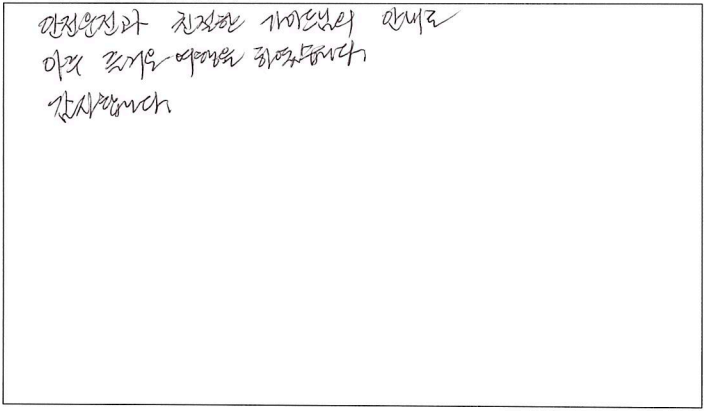 안전운전과 친절한 가이드님의 안내로
아주 즐거운 여행을 하였습니다.
감사합니다.